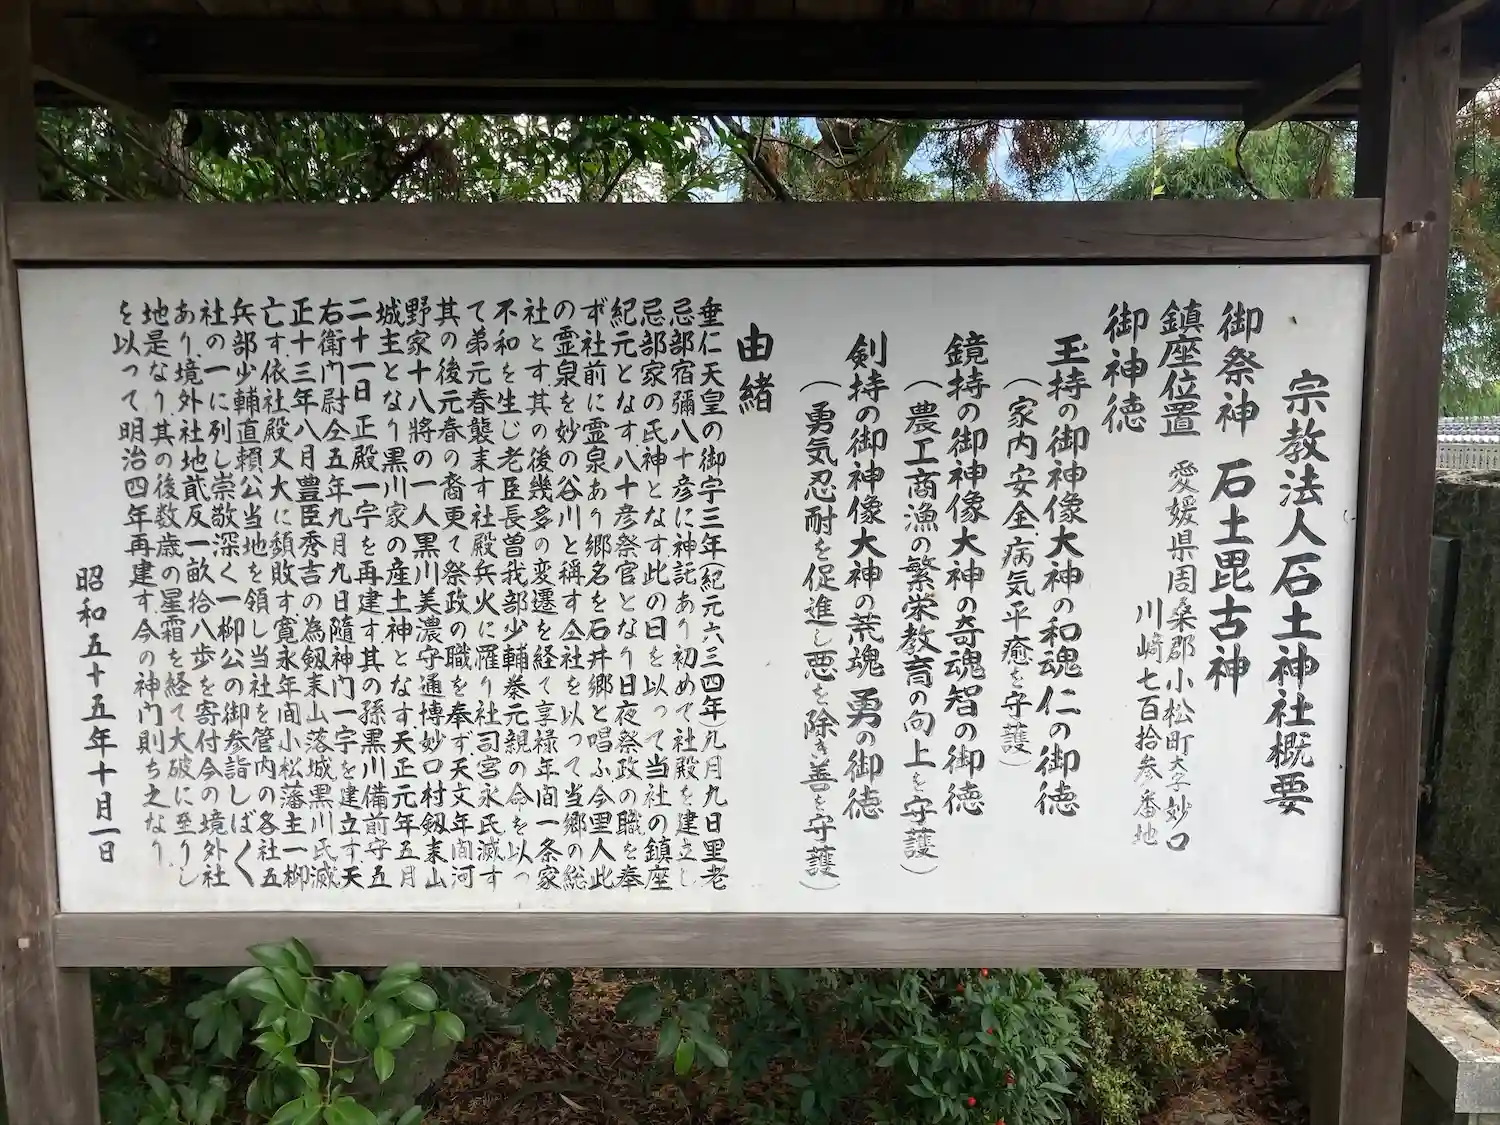 宗教法人石土神社概要
御祭神　石土毘古神
鎮座位置　愛媛県周桑郡小松町大字妙口
川﨑七百拾参番地
御神徳
玉持の御神像大神の和魂仁の御徳
（家内安全.病気平癒を守護）
鏡持の御神像大神の奇魂智の御徳
（農工商漁の繁栄教育の向上を守護）
剣持の御神像大神の荒魂勇の御徳
（勇気忍耐を促進し悪を除き善を守護）
由緒
垂仁天皇の御宇三年（紀元六三四年）九月九日里老
忌部宿彌八十彦に神託あり初めて社殿を建立し
忌部家の氏神となす此の日を以って当社の鎮座
紀元となす八十彦祭官となり日夜祭政の職を奉
ず社前に霊泉あり郷名を石井郷と唱ふ今里人此
の霊泉を妙の谷川と稱す仝社を以って当郷の総
社とす其の後幾多の変遷を経て享禄年间一条家
不和を生じ老臣長曽我部少輔拳元親の命を以っ
て弟元春襲来す社殿兵火に罹り社司宮永氏滅す
其の後元春の裔更て祭政の職を奉ず天文年间河
野家十八將の一人黒川美濃守通博妙口村剱来山
城主となり黒川家の産土神となす天正元年五月
二十一日正殿一宇を再建す其の孫黒川備前守五
右衛门尉仝五年九月九日隨神门一宇を建立す天
正十三年八月豊臣秀吉の為剱来山落城黒川氏滅
亡す依社殿又大に頽敗す寛永年间小松藩主一柳
兵部少輔直頼公当地を領し当社を管内の各社五
社の一に列し崇敬深く一柳公の御参詣しばく
あり境外社地貮反一畝拾八歩を寄付今の境外社
地是なり其の後数歳の星霜を経て大破に至りし
を以って明治四年再建す今の神门則ち之なり
昭和五十五年十月一日